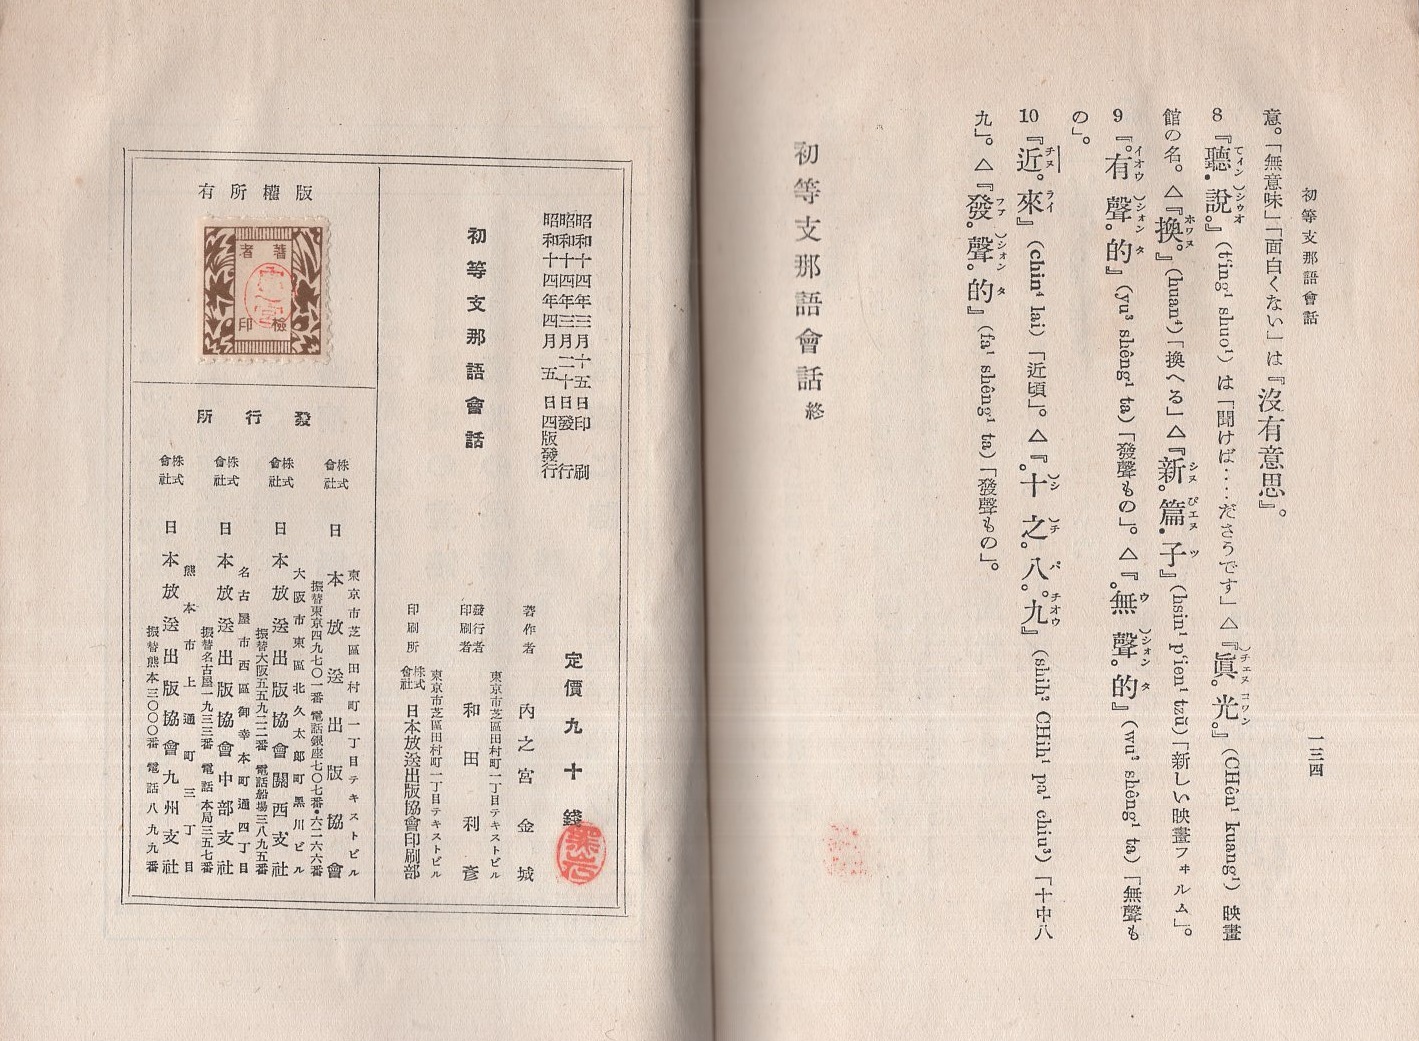 初等支那語會話
一三四
意。「無意味」「面白くない」は『沒有意思』。
8 『聽說。』(t‘ing¹ shuo¹) は「聞けば‥‥ださうです」△『眞光。』(CHên¹ kuang¹) 映畫
館の名。△『換。』(huan⁴)「換へる」△『新篇子』(hsin¹ p‘ien¹ tzŭ)「新しい映畫フヰルム」。
9 『有聲的』(yu³ shêng¹ ta)「發聲もの」。△『無聲的』(wu² shêng¹ ta)「無聲も
の」。
10 『近來』(chin⁴ lai)「近頃」。△『十之八九』(shih² CHih¹ pa¹ chiu³)「十中八
九」。△『發聲的』(fa¹ shêng¹ ta)「發聲もの」。
初等支那語會話 終
昭和十四年三月十五日印刷
昭和十四年三月二十日發行
昭和十四年四月五日四版發行
初等支那語會話
定價九十錢
著作者 內之宮金城
東京市芝區田村町一丁目テキストビル
發行者
印刷者 和田利彥
東京市芝區田村町一丁目テキストビル
印刷所 株式會社 日本放送出版協會印刷部
版權所有
著者
檢印
發行所
東京市芝區田村町一丁目テキストビル
株式會社 日本放送出版協會
振替東京四九七〇一番 電話銀座七〇七番・六二六六番
大阪市東區北久太郎町黑川ビル
株式會社 日本放送出版協會關西支社
振替大阪五五九二二番 電話船場三八九五番
名古屋市西區御幸本町通四丁目
株式會社 日本放送出版協會中部支社
振替名古屋一九三三番 電話本局三五七番
熊本市上通町三丁目
株式會社 日本放送出版協會九州支社
振替熊本三〇〇〇番 電話八九九番